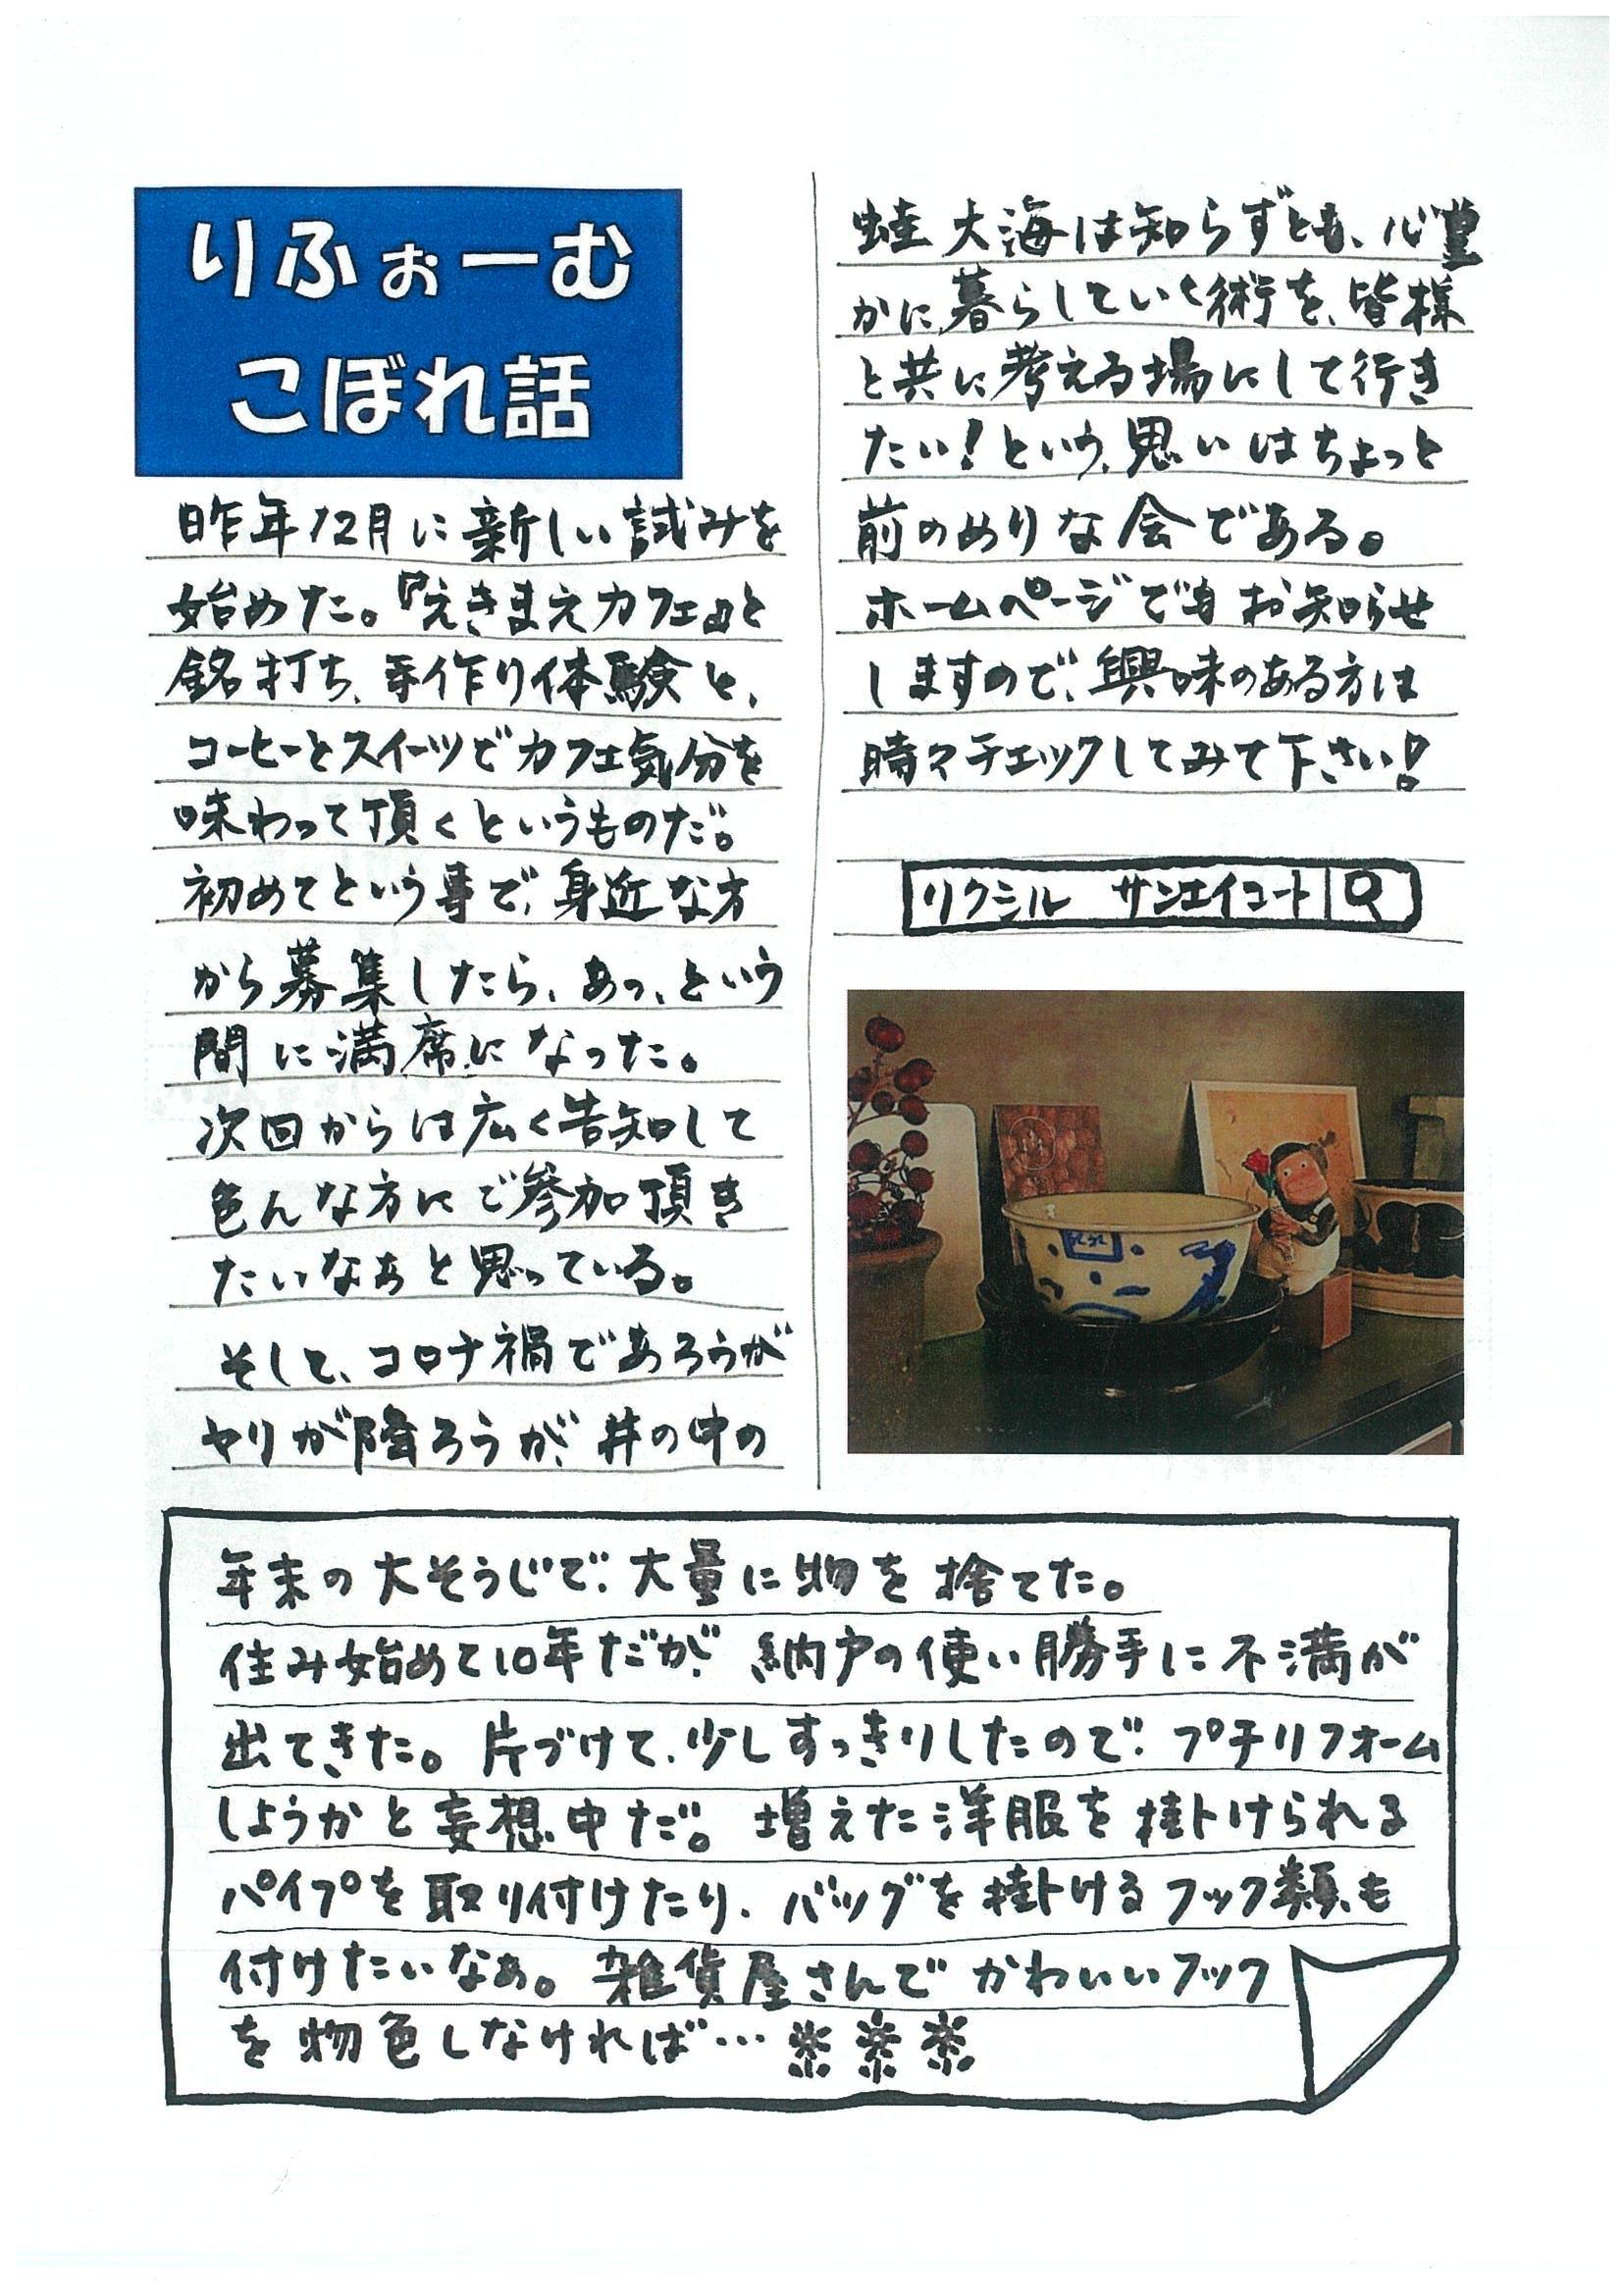 りふぉーむ
こぼれ話
昨年12月に新しい試みを
始めた。『えきまえカフェ』と
銘打ち、手作り体験と、
コーヒーとスイーツでカフェ気分を
味わって頂くというものだ。
初めてという事で、身近な方
から募集したら、あっ、という
間に満席になった。
次回からは広く告知して
色んな方にご参加頂き
たいなぁと思っている。
そして、コロナ禍であろうが
ヤリが降ろうが、井の中の
蛙大海は知らずとも、心豊
かに暮らしていく術を、皆様
と共に考える場にして行き
たい！という、思いはちょっと
前のめりな会である。
ホームページでもお知らせ
しますので、興味のある方は
時々チェックしてみて下さい！
リクシル サンエイコート
年末の大そうじで、大量に物を捨てた。
住み始めて10年だが、納戸の使い勝手に不満が
出てきた。片づけて、少しすっきりしたので、プチリフォーム
しようかと妄想中だ。増えた洋服を掛けられる
パイプを取り付けたり、バッグを掛けるフック類も
付けたいなぁ。雑貨屋さんでかわいいフック
を物色しなければ…